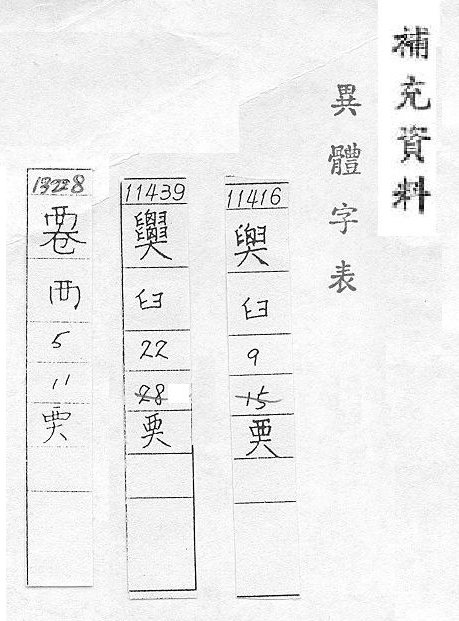 補充資料
異體字表
11416
臼
9
15
11439
臼
22
28
13228
襾
5
11